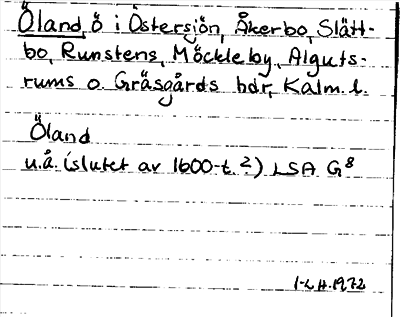 Öland, ö i Östersjön, Åkerbo, Slätt-
bo, Runstens, Möckleby, Alguts-
rums o. Gräsgårds hdr, Kalm. l.
Öland
u.å. (slutet av 1600-t.?) LSA G8
I-L H. 1972